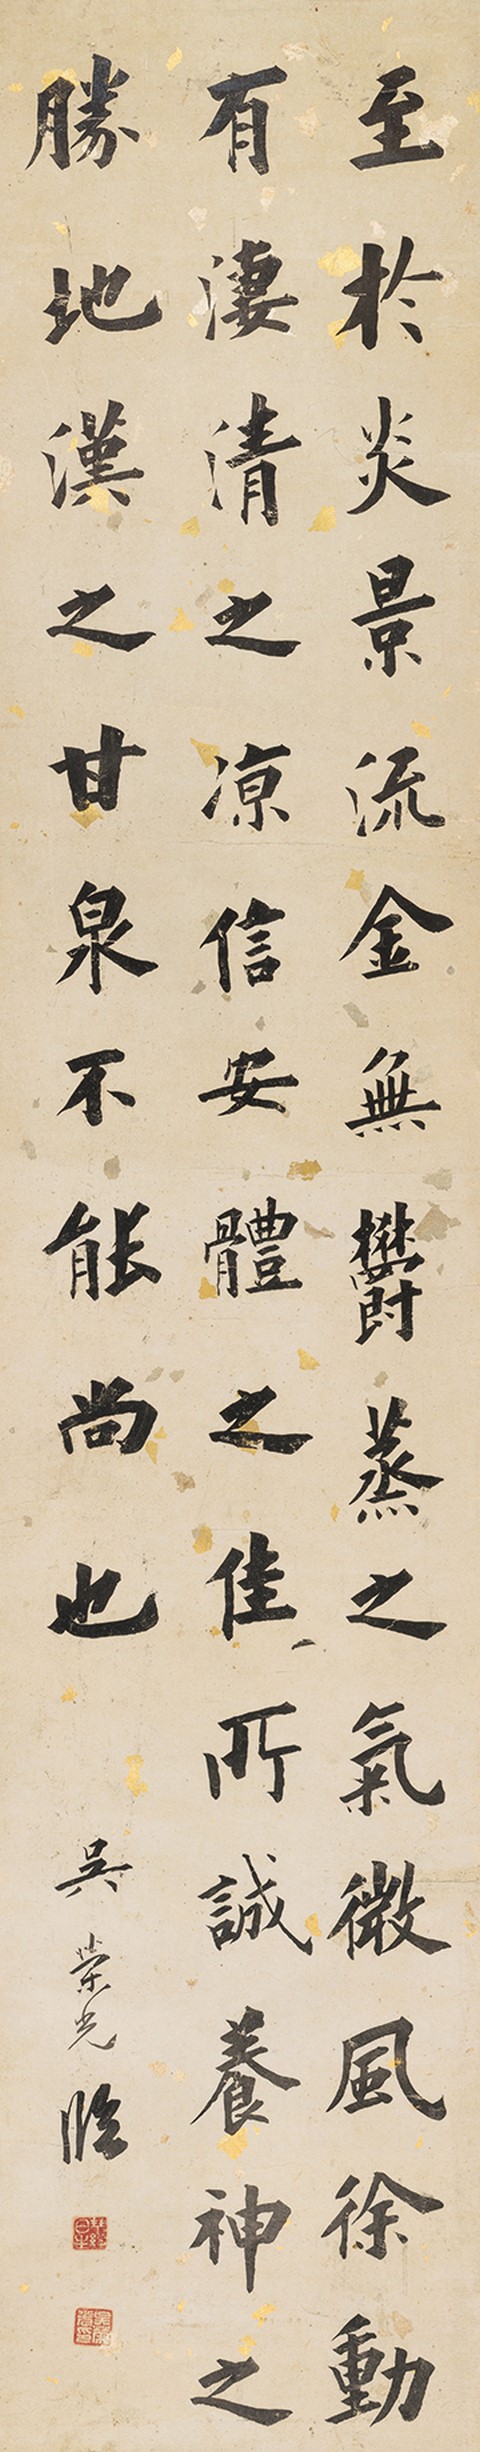 至於炎景流金無鬱蒸之氣微風徐動
有淒清之凉信安體之佳所誠養神之
勝地漢之甘泉不能尚也
吳榮光臨